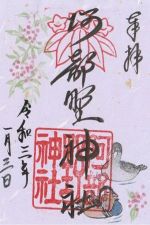 奉拝
阿部野神社
令和三年
一月三日
阿部野
神社